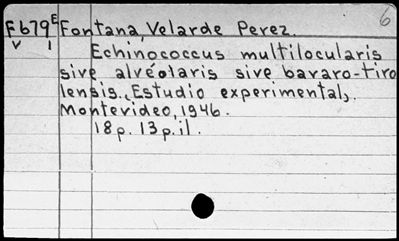 6
F679E Fontana, Velarde Perez.
v 1
Echinococcus multilocularis
sive alvéolaris sive bavaro-tiro
lensis. (Estudio experimental).
Montevideo, 1946.
18p. 13p.il.